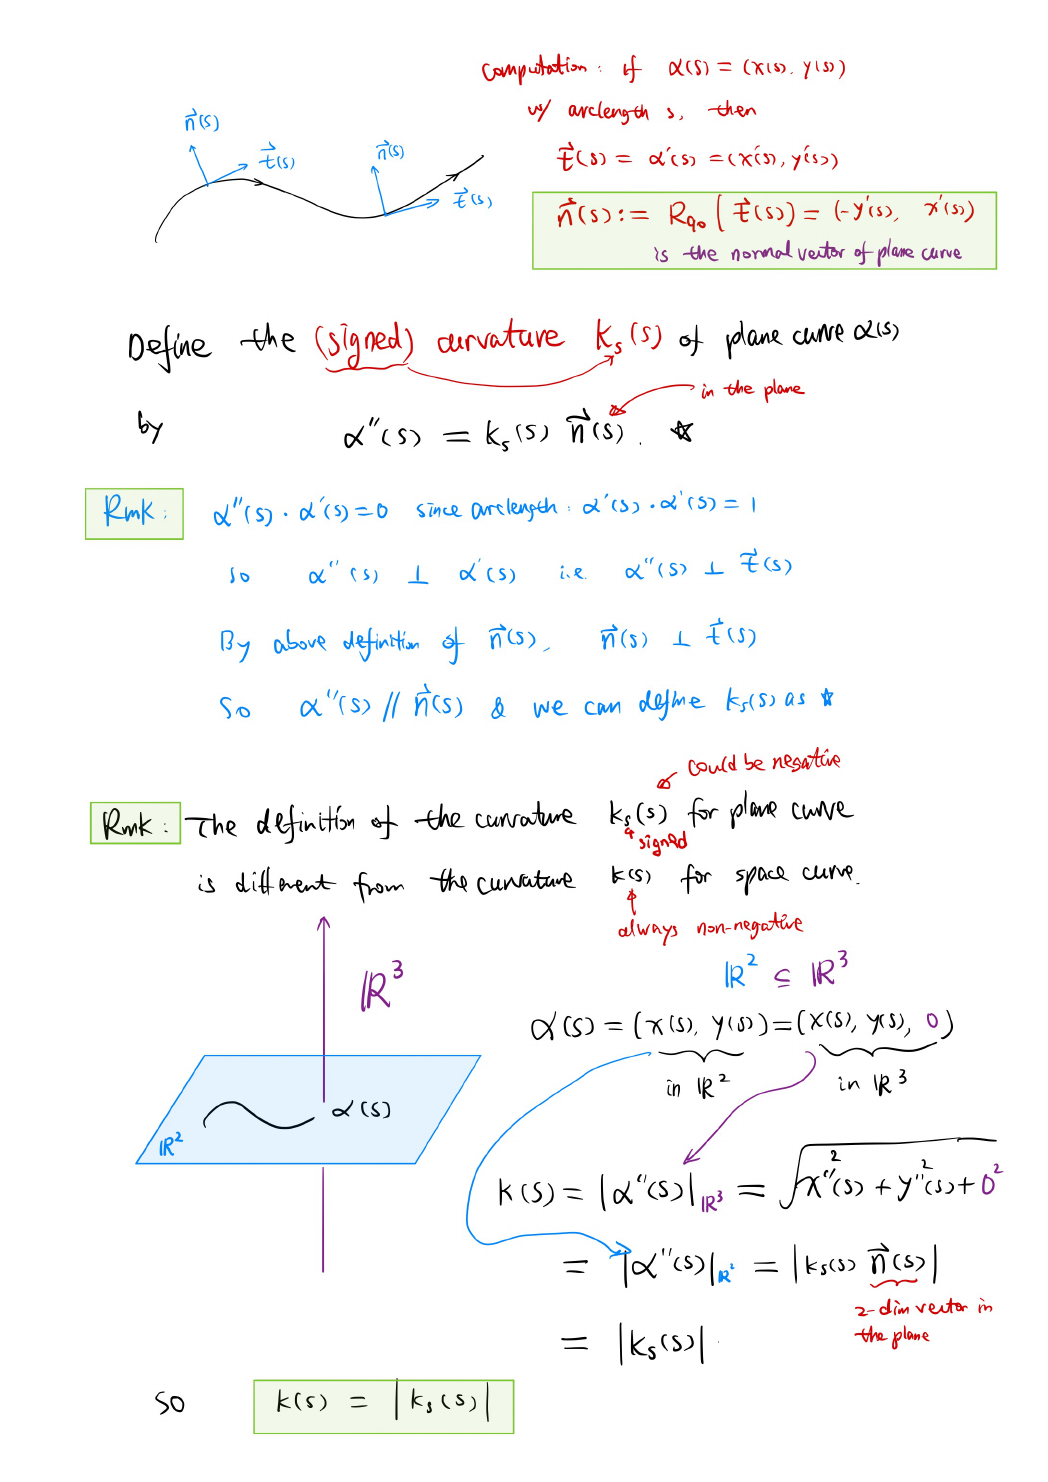 computation: if α(s) = (x(s), y(s))
w/ arclength s, then
t⃗(s) = α'(s) = (x'(s), y'(s))
n⃗(s) := R₉₀ (t⃗(s)) = (-y'(s), x'(s))
is the normal vector of plane curve
n⃗(s)
t⃗(s)
n⃗(s)
t⃗(s)
Define the (signed) curvature kₛ(s) of plane curve α(s)
in the plane
by α''(s) = kₛ(s) n⃗(s). ☆
Rmk: α''(s) · α'(s) = 0 since arclength: α'(s) · α'(s) = 1
so α''(s) ⊥ α'(s) i.e. α''(s) ⊥ t⃗(s)
By above definition of n⃗(s), n⃗(s) ⊥ t⃗(s)
So α''(s) // n⃗(s) & we can define kₛ(s) as ☆
could be negative
Rmk: The definition of the curvature kₛ(s) for plane curve
signed
is different from the curvature k(s) for space curve.
always non-negative
ℝ³
ℝ² ⊆ ℝ³
α(s) = (x(s), y(s)) = (x(s), y(s), 0)
in ℝ² in ℝ³
α(s)
ℝ²
k(s) = |α''(s)|_ℝ³ = √(x''²(s) + y''²(s) + 0²)
= |α''(s)|_ℝ² = |kₛ(s) n⃗(s)|
2-dim vector in
the plane
= |kₛ(s)|.
So k(s) = |kₛ(s)|